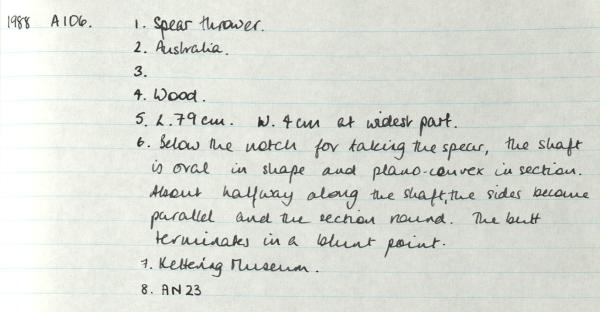 1988 A106. 1. Spear thrower.
2. Australia.
3.
4. Wood.
5. L. 79cm. W. 4cm at widest part.
6. Below the notch for taking the spear, the shaft
is oval in shape and plano-convex in section.
About halfway along the shaft, the sides become
parallel and the section round. The butt
terminates in a blunt point.
7. Kettering Museum.
8. AN23